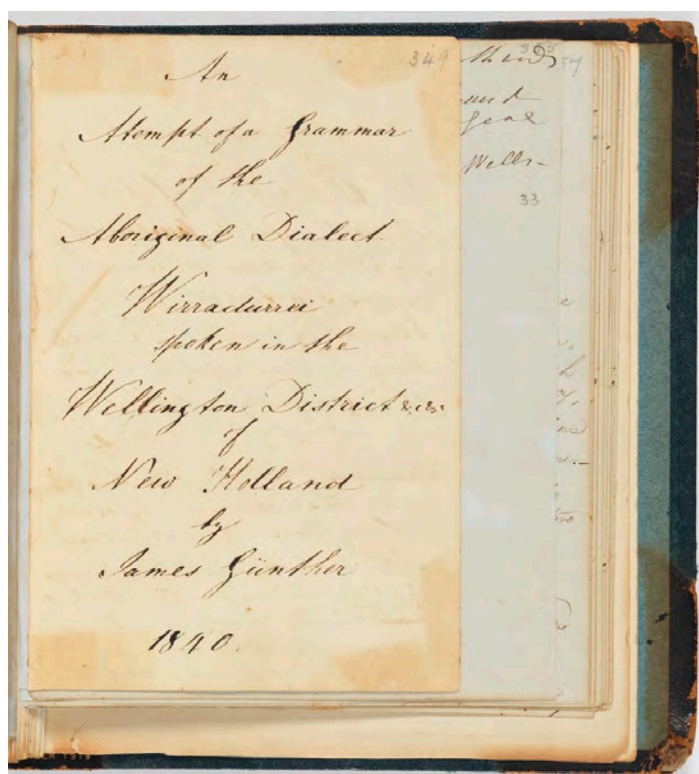 349
An
Atempt of a Grammar
of the
Aboriginal Dialect
Wirradurrei
spoken in the
Wellington District &.c&c.
of
New Holland
by
James Günther
1840.
and
geal
Wells-
33